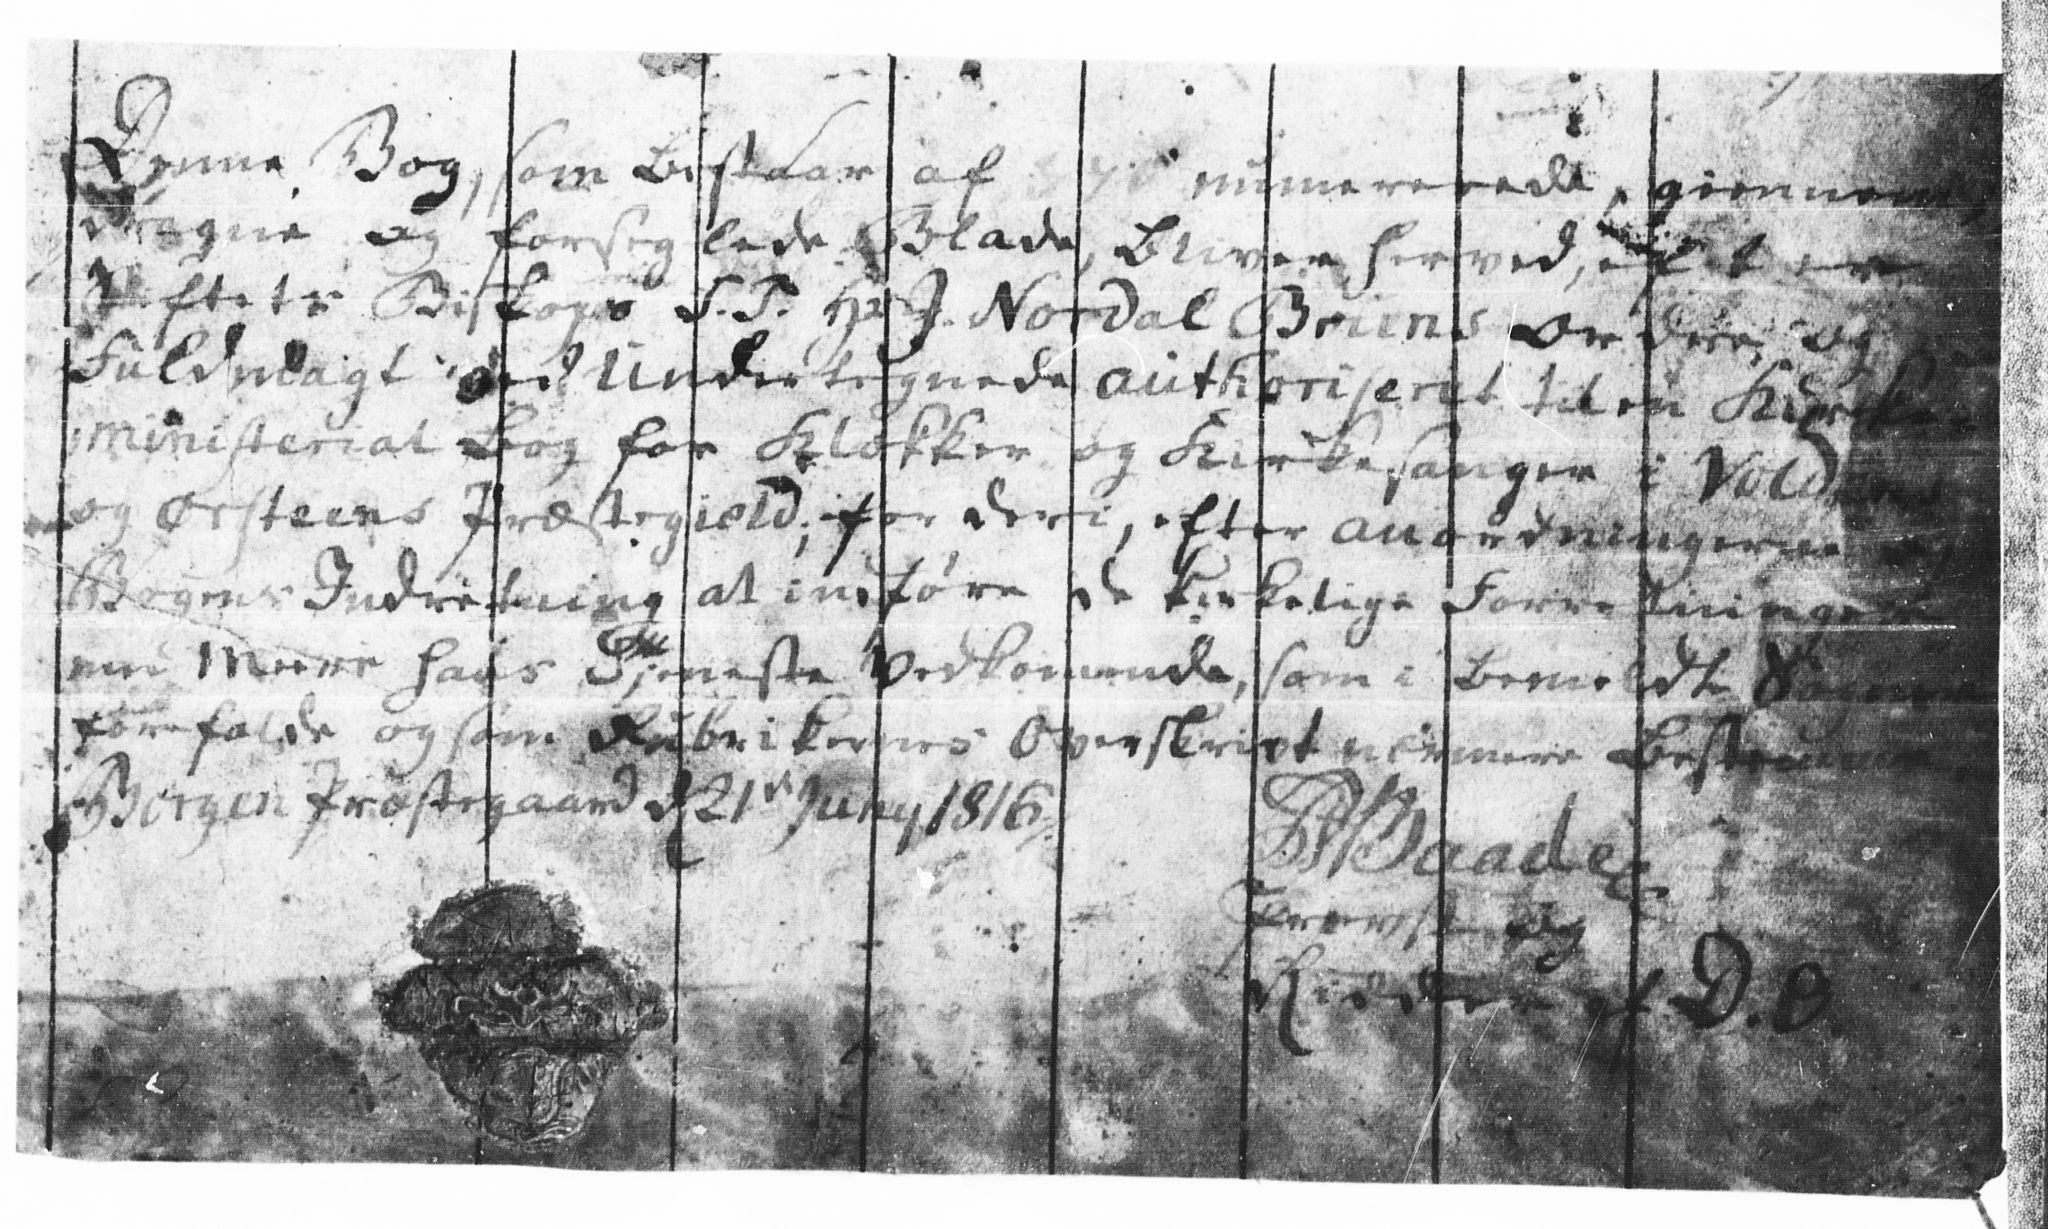 Denne Bog, som bestaar af numererede, giennem
dragne og forseglede Blade, bliver herved, efter
Stiftets Biskops S. T. Hr J. Nordal Bruns Ordre og
Fuldmagt ved Undertegnede authoriseret til en Kirke
ministerial Bog for Klokker og Kirkesanger i Voldens
og Ørsteens Præstegield, for deri, efter Anordningerne og
Bogens Indretning at indføre de kirkelige Forretninger
med meere hans Tjeneste Vedkommende, som i bemeldte Sogne
forefalde og som Rubrikernes Overskrivt nærmere bestemme.
Bergen Præstegaard d 21de Juny 1816
Baade
Provst og
Ridder af D. O.